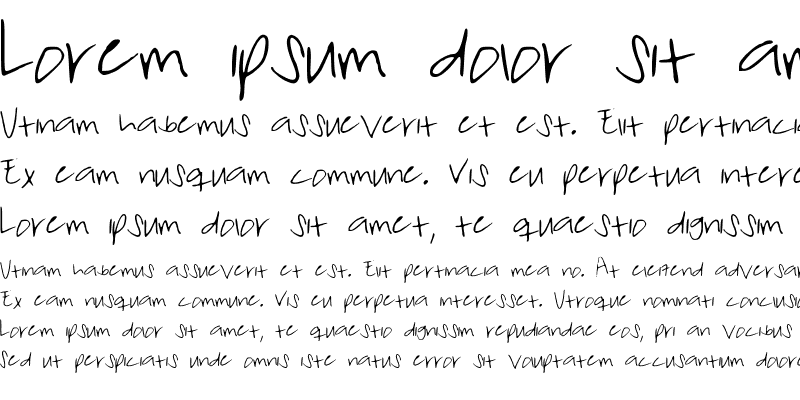 Lorem ipsum dolor sit am
Utinam habemus assueverit et est. Elit pertinacia
Ex eam nusquam commune. Vis eu perpetua intere
Lorem ipsum dolor sit amet, te quaestio dignissim
Utinam habemus assueverit et est. Elit pertinacia mea no. At eleifend adversar
Ex eam nusquam commune. Vis eu perpetua interesset. Utroque nominati conclusio
Lorem ipsum dolor sit amet, te quaestio dignissim repudiandae eos, pri an vocibus
Sed ut perspiciatis unde omnis iste natus error sit voluptatem accusantium dolore